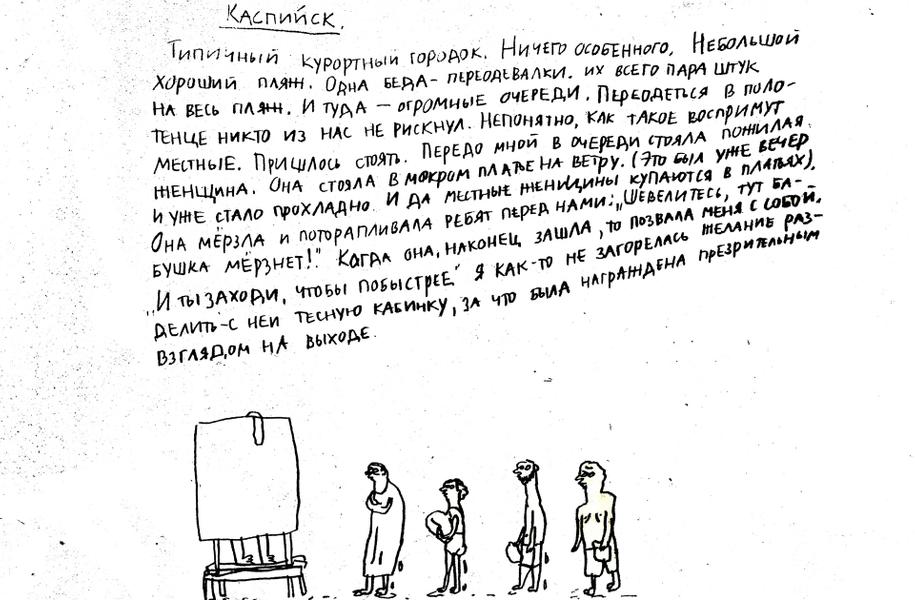 КАСПИЙСК.
ТИПИЧНЫЙ КУРОРТНЫЙ ГОРОДОК. НИЧЕГО ОСОБЕННОГО. НЕБОЛЬШОЙ
ХОРОШИЙ ПЛЯЖ. ОДНА БЕДА - ПЕРЕОДЕВАЛКИ. ИХ ВСЕГО ПАРА ШТУК
НА ВЕСЬ ПЛЯЖ. И ТУДА - ОГРОМНЫЕ ОЧЕРЕДИ. ПЕРЕОДЕТЬСЯ В ПОЛО-
ТЕНЦЕ НИКТО ИЗ НАС НЕ РИСКНУЛ. НЕПОНЯТНО, КАК ТАКОЕ ВОСПРИМУТ
МЕСТНЫЕ. ПРИШЛОСЬ СТОЯТЬ. ПЕРЕДО МНОЙ В ОЧЕРЕДИ СТОЯЛА ПОЖИЛАЯ
ЖЕНЩИНА. ОНА СТОЯЛА В МОКРОМ ПЛАТЬЕ НА ВЕТРУ. (ЭТО БЫЛ УЖЕ ВЕЧЕР
И УЖЕ СТАЛО ПРОХЛАДНО. И ДА МЕСТНЫЕ ЖЕНЩИНЫ КУПАЮТСЯ В ПЛАТЬЯХ).
ОНА МЁРЗЛА И ПОТОРАПЛИВАЛА РЕБЯТ ПЕРЕД НАМИ: „ШЕВЕЛИТЕСЬ, ТУТ БА-
БУШКА МЁРЗНЕТ!" КОГДА ОНА, НАКОНЕЦ ЗАШЛА, ТО ПОЗВАЛА МЕНЯ С СОБОЙ.
„И ТЫ ЗАХОДИ, ЧТОБЫ ПОБЫСТРЕЕ." Я КАК-ТО НЕ ЗАГОРЕЛАСЬ ЖЕЛАНИЕ РАЗ-
ДЕЛИТЬ С НЕЙ ТЕСНУЮ КАБИНКУ, ЗА ЧТО БЫЛА НАГРАЖДЕНА ПРЕЗРИТЕЛЬНЫМ
ВЗГЛЯДОМ НА ВЫХОДЕ.